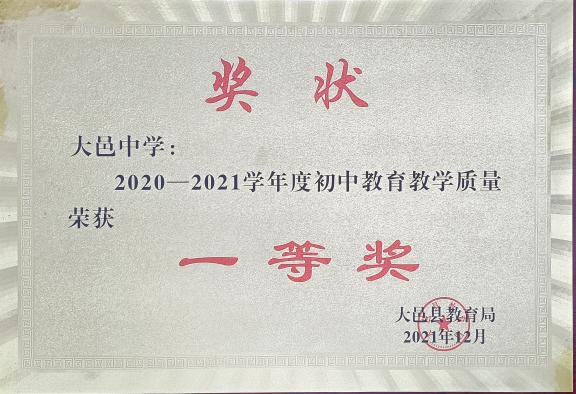 奖 状
大邑中学：
2020—2021学年度初中教育教学质量
荣获
一等奖
大邑县教育局
2021年12月